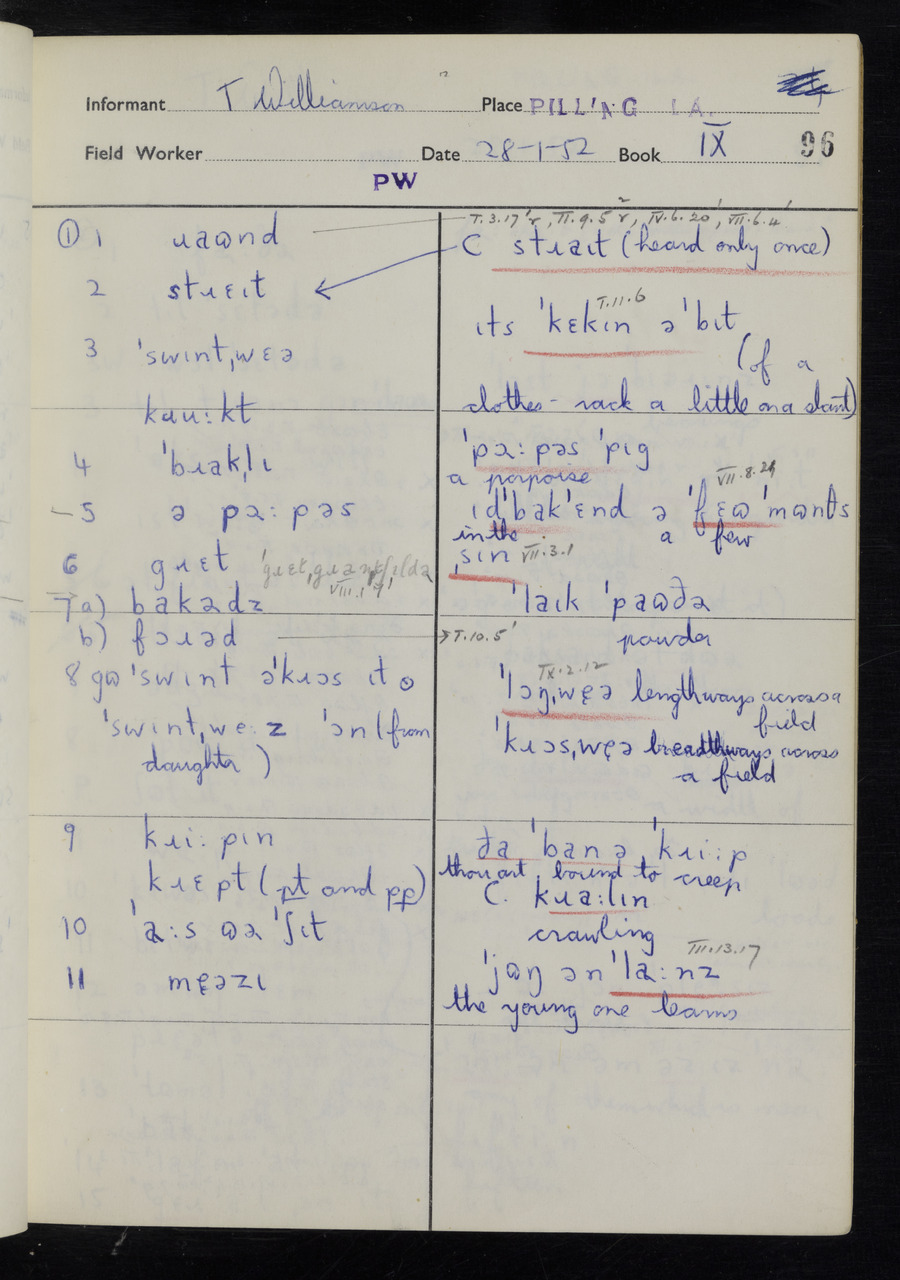 Informant T Williamson Place PILLING LA.
Field Worker PW Date 28-1-52 Book IX 96
① 1 ɹaɷnd
2 stɹɛɪt
3 ˈswɪntˌwɛə
kɹu:kt
4 ˈbɹakˌlɪ
5 ə pɔ:pəs
6 gɹɛt
VIII.1.7
7 a) bakədz
b) fɔɹəd
8 gɷ ˈswɪnt əˈkɹɔs ɪt
ˈswɪntˌwe:z ˈɔn (from
daughter)
9 kɹi:pɪn
kɹɛpt (pt and pp)
10 ˈa:s ɷə ˈʃɪt
11 mɛ̣əzɪ
T.3.17', II.9.5, IV.6.20', VII.6.4'
C stɹaɪt (heard only once)
ɪts ˈkɛkɪn ə ˈbɪt
T.11.6
(of a
clothes-rack a little on a slant)
ˈpɔ:pəs ˈpɪg
a porpoise
VII.8.21
ɪdˈbakˈɛnd ə ˈfɛɷ ˈmɷnθs
in the a few
ˌsɪn VII.3.1
ˈlaɪk ˈpaɷðə
→ T.10.5' powder
IX.2.12
ˈlɔŋˌwɛ̣ə lengthways across a
field
ˈkɹɔsˌwɛ̣ə breadthways across
a field
ða ˈban ə ˈkɹi:p
thou art bound to creep
C. kɹa:lɪn
crawling
III.13.17
ˈjɷŋ ənˈla:nz
the young one learns